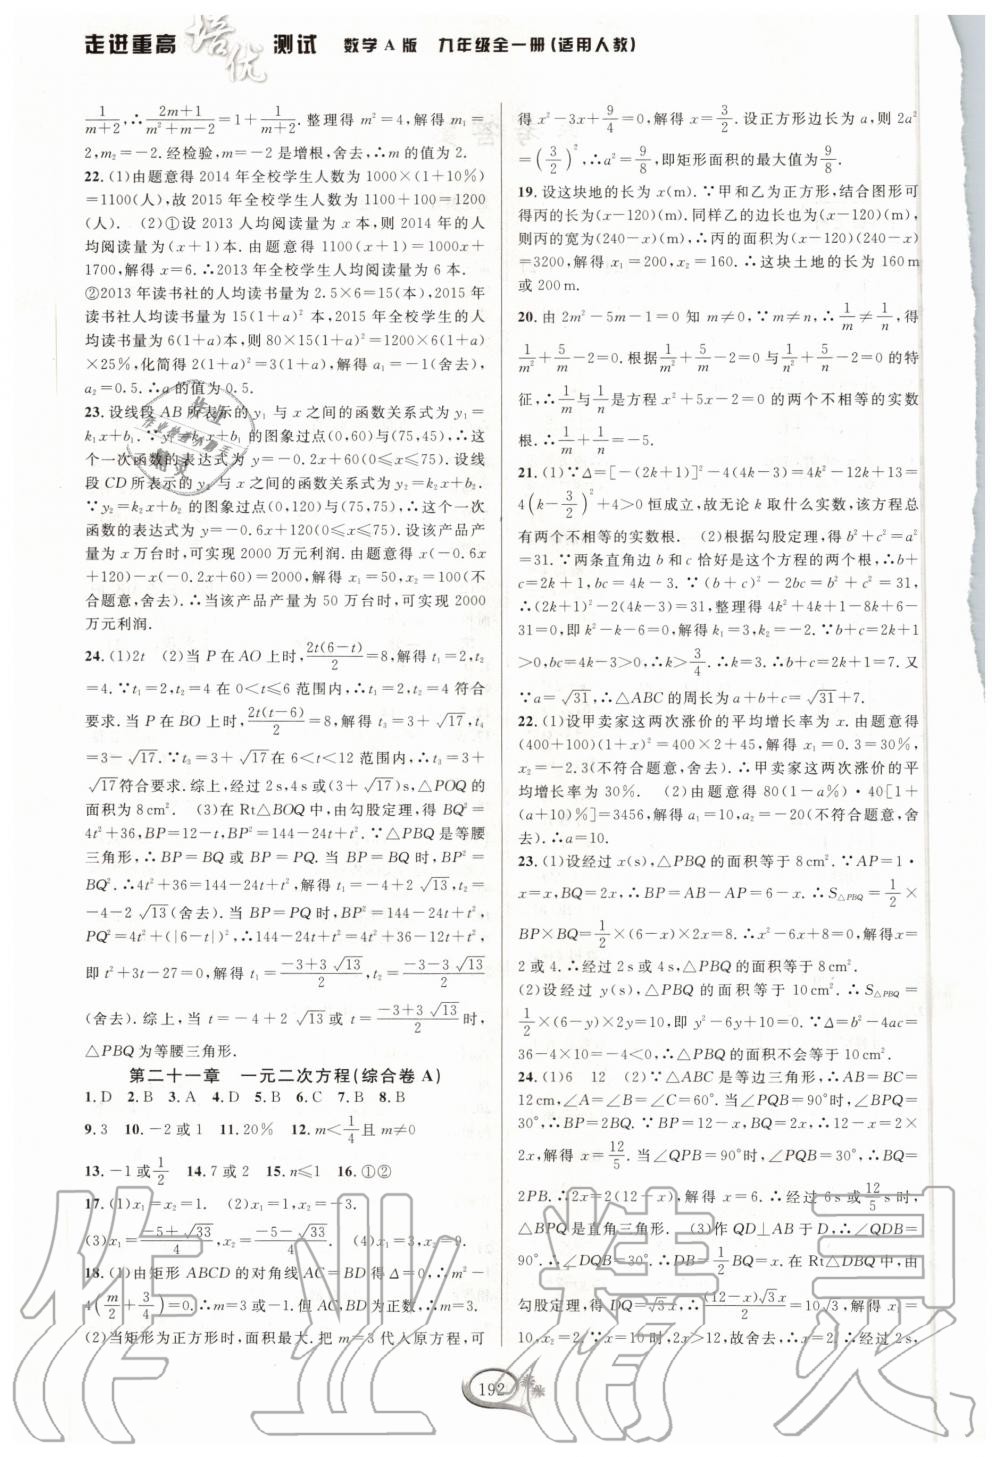 走进重高 培优 测试 数学A版 九年级全一册(适用人教)
1/(m+2),∴(2m+1)/(m²+m−2)=1+1/(m+2).整理得 m²=4,解得 m₁=
2,m₂=−2.经检验,m=−2 是增根,舍去,∴m 的值为 2.
22.(1)由题意得 2014 年全校学生人数为 1000×(1+10%)
=1100(人),故 2015 年全校学生人数为 1100+100=1200
(人). (2)①设 2013 人均阅读量为 x 本,则 2014 年的人
均阅读量为(x+1)本.由题意得 1100(x+1)=1000x+
1700,解得 x=6.∴2013 年全校学生人均阅读量为 6 本.
②2013 年读书社的人均读书量为 2.5×6=15(本),2015 年
读书社人均读书量为 15(1+a)² 本,2015 年全校学生的人
均读书量为 6(1+a)本,则 80×15(1+a)²=1200×6(1+a)
×25%,化简得 2(1+a)²=3(1+a),解得 a₁=−1(舍去),
a₂=0.5.∴a 的值为 0.5.
23.设线段 AB 所表示的 y₁ 与 x 之间的函数关系式为 y₁=
k₁x+b₁.∵y₁=k₁x+b₁ 的图象过点(0,60)与(75,45),∴这
个一次函数的表达式为 y=−0.2x+60(0<x<75).设线
段 CD 所表示的 y₂ 与 x 之间的函数关系式为 y₂=k₂x+b₂.
∵y₂=k₂x+b₂ 的图象过点(0,120)与(75,75),∴这个一次
函数的表达式为 y=−0.6x+120(0<x<75).设该产品产
量为 x 万台时,可实现 2000 万元利润.由题意得 x(−0.6x
+120)−x(−0.2x+60)=2000,解得 x₁=50,x₂=100(不
合题意,舍去).∴当该产品产量为 50 万台时,可实现 2000
万元利润.
24.(1)2t (2)当 P 在 AO 上时,2t(6−t)/2=8,解得 t₁=2,t₂
=4.∵t₁=2,t₂=4 在 0<t≤6 范围内,∴t₁=2,t₂=4 符合
要求.当 P 在 BO 上时,2t(t−6)/2=8,解得 t₃=3+√17,t₄
=3−√17.∵t₃=3+√17在 6<t<12 范围内,∴t₃=3+
√17符合要求.综上,经过 2s,4s 或(3+√17)s,△POQ 的
面积为 8cm². (3)在 Rt△BOQ 中,由勾股定理,得 BQ²=
4t²+36,BP=12−t,BP²=144−24t+t².∵△PBQ 是等腰
三角形,∴BP=BQ 或 BP=PQ.当 BP=BQ 时,BP²=
BQ².∴4t²+36=144−24t+t²,解得 t₁=−4+2√13,t₂=
−4−2√13(舍去).当 BP=PQ 时,BP²=PQ².∵
PQ²=4t²+(|6−t|)²,∴144−24t+t²=4t²+36−12t+t²,
即 t²+3t−27=0,解得 t₁=(−3+3√13)/2,t₂=(−3−3√13)/2
(舍去).综上,当 t=−4+2√13或 t=(−3+3√13)/2时,
△PBQ 为等腰三角形.
第二十一章 一元二次方程(综合卷 A)
1.D 2.B 3.A 4.D 5.B 6.C 7.B 8.B
9.3 10.−2或1 11.20% 12.m<1/4且 m≠0
13.−1或1/2 14.7或2 15.n≤1 16.①②
17.(1)x₁=x₂=1. (2)x₁=1,x₂=3.
(3)x₁=(−5+√33)/4,x₂=(−5−√33)/4. (4)x₁=3,x₂=9.
18.(1)由矩形 ABCD 的对角线 AC=BD 得 Δ=0,∴m²−
4(m/2+3/4)=0.∴m=3 或−1.但 AC,BD 为正数,∴m=3.
(2)当矩形为正方形时,面积最大.把 m=3 代入原方程,可
得 x²−3x+9/4=0,解得 x=3/2.设正方形边长为 a,则 2a²
=(3/2)²,∴a²=9/8,即矩形面积的最大值为9/8.
19.设这块地的长为 x(m).∵甲和乙为正方形,结合图形可
得丙的长为(x−120)(m).同样乙的边长也为(x−120)(m),
则丙的宽为(240−x)(m),∴丙的面积为(x−120)(240−x)
=3200,解得 x₁=200,x₂=160.∴这块土地的长为 160m
或 200m.
20.由 2m²−5m−1=0 知 m≠0,∵m≠n,∴1/m≠1/n,得
1/m²+5/m−2=0.根据1/m²+5/m−2=0 与1/n²+5/n−2=0 的特
征,∴1/m与1/n是方程 x²+5x−2=0 的两个不相等的实数
根.∴1/m+1/n=−5.
21.(1)∵Δ=[−(2k+1)]²−4(4k−3)=4k²−12k+13=
4(k−3/2)²+4>0 恒成立,故无论 k 取什么实数,该方程总
有两个不相等的实数根. (2)根据勾股定理,得 b²+c²=a²
=31.∵两条直角边 b 和 c 恰好是这个方程的两个根,∴b+
c=2k+1,bc=4k−3.∵(b+c)²−2bc=b²+c²=31,
∴(2k+1)²−2(4k−3)=31,整理得 4k²+4k+1−8k+6−
31=0,即 k²−k−6=0,解得 k₁=3,k₂=−2.∵b+c=2k+1
>0,bc=4k−3>0,∴k>3/4.∴k=3.∴b+c=2k+1=7.又
∵a=√31,∴△ABC 的周长为 a+b+c=√31+7.
22.(1)设甲卖家这两次涨价的平均增长率为 x.由题意得
(400+100)(1+x)²=400×2+45,解得 x₁=0.3=30%,
x₂=−2.3(不符合题意,舍去).∴甲卖家这两次涨价的平
均增长率为 30%. (2)由题意得 80(1−a%)·40[1+
(a+10)%]=3456,解得 a₁=10,a₂=−20(不符合题意,舍
去).∴a=10.
23.(1)设经过 x(s),△PBQ 的面积等于 8cm².∵AP=1·
x=x,BQ=2x,∴BP=AB−AP=6−x.∴S△PBQ=1/2×
BP×BQ=1/2×(6−x)×2x=8.∴x²−6x+8=0.解得x=
2或4.∴经过 2s 或 4s,△PBQ 的面积等于 8cm².
(2)设经过 y(s),△PBQ 的面积等于 10cm².∴S△PBQ=
1/2×(6−y)×2y=10,即 y²−6y+10=0.∵Δ=b²−4ac=
36−4×10=−4<0,∴△PBQ 的面积不会等于 10cm².
24.(1)6 12 (2)∵△ABC 是等边三角形,∴AB=BC=
12cm,∠A=∠B=∠C=60°.当∠PQB=90°时,∠BPQ=
30°,∴BP=2BQ.∵BP=12−x,BQ=2x,∴12−x=2×
2x,解得 x=12/5.当∠QPB=90°时,∠PQB=30°,∴BQ=
2PB.∴2x=2(12−x),解得 x=6.∴经过 6s或12/5s时,
△BPQ 是直角三角形. (3)作 QD⊥AB 于 D,∴∠QDB=
90°.∴∠DQB=30°.∴DB=1/2BQ=x.在 Rt△DBQ 中,由
勾股定理,得 DQ=√3x,∴(12−x)√3x/2=10√3,解得 x₁=
10,x₂=2.∵x=10时,2x>12,故舍去,∴x=2.∴经过 2s,
192
作业精灵